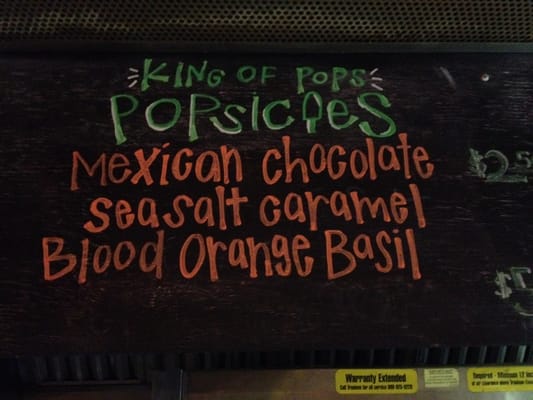 KING OF POPS
POPSICLES
Mexican Chocolate
seasalt caramel
Blood Orange Basil
Warranty Extended